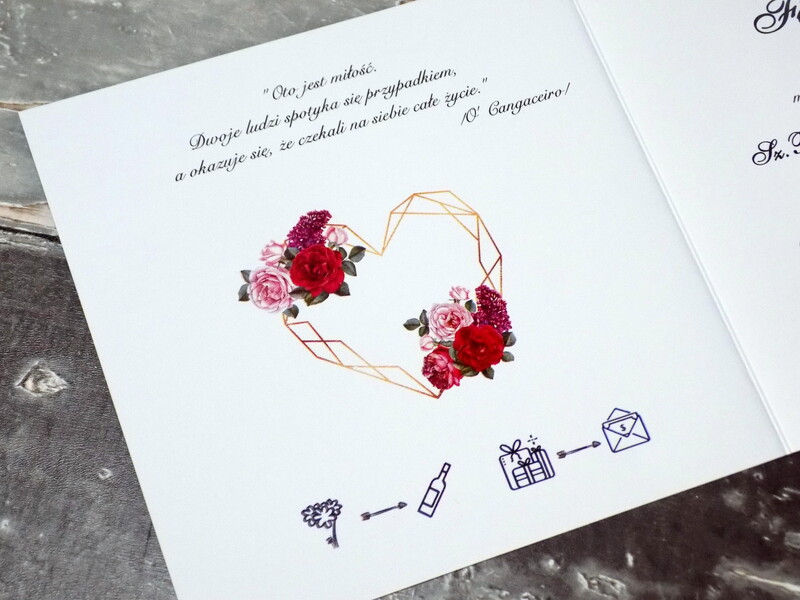 "Oto jest miłość.
Dwoje ludzi spotyka się przypadkiem,
a okazuje się, że czekali na siebie całe życie."
/O' Cangaceiro/
Sz.
$